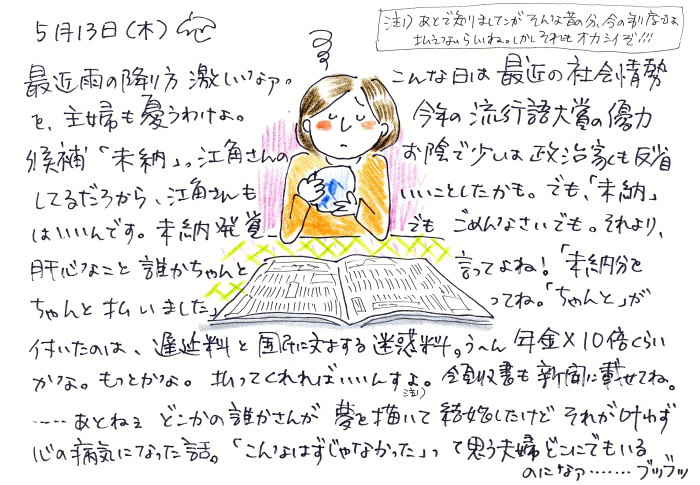 5月13日(木)
注1) あとで知りましてンが そんな昔の分、今の制度では
払えないらしいね。しかしそれも オカシイぞ!!!
最近雨の降り方 激しいなァ。 こんな日は 最近の社会情勢
を、主婦も憂うわけよ。 今年の 流行語大賞の優力
候補「未納」っ。江角さんの お陰で少しは 政治家も反省
してるだろから、江角さんも いいことしたかも。でも、「未納」
はいいんです。未納発覚 でも ごめんなさいでも。それより、
肝心なこと 誰かちゃんと 言ってよね!「未納分を
ちゃんと 払いました」 ってね。「ちゃんと」が
付いたのは、遅延料と 国民に対する 迷惑料。う〜ん 年金×10倍くらい
かな。もっとかな。 払ってくれればいいんすよ。注1) 領収書も 新聞に載せてね。
……あとねェ どこかの誰かさんが 夢を描いて 結婚したけど それが叶わず
心の病気になった話。「こんなはずじゃなかった」って思う夫婦 どこにでもいる
のになァ……… ブツブツ